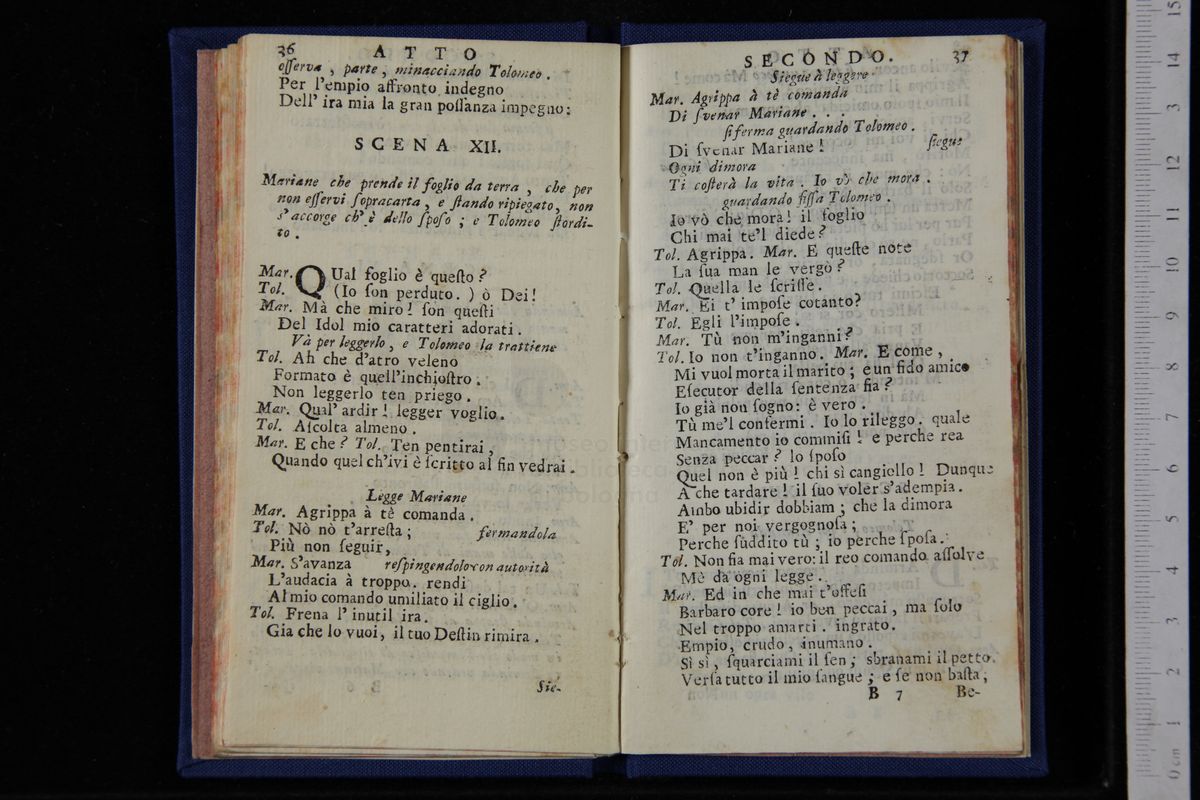 36 ATTO
oſſerva, parte, minacciando Tolomeo.
Per l'empio affronto indegno
Dell' ira mia la gran poſſanza impegno:
SCENA XII.
Mariane che prende il foglio da terra, che per
non eſſervi ſopracarta, e ſtando ripiegato, non
s'accorge ch'è dello ſpoſo; e Tolomeo ſtordi-
to.
Mar. QUal foglio è queſto?
Tol. (Io ſon perduto.) ò Dei!
Mar. Mà che miro! ſon queſti
Del Idol mio caratteri adorati.
Và per leggerlo, e Tolomeo la trattiene
Tol. Ah che d'atro veleno
Formato è quell'inchioſtro.
Non leggerlo ten priego.
Mar. Qual' ardir! legger voglio.
Tol. Aſcolta almeno.
Mar. E che? Tol. Ten pentirai,
Quando quel ch'ivi è ſcritto al fin vedrai.
Legge Mariane
Mar. Agrippa à tè comanda.
Tol. Nò nò t'arreſta; fermandola
Più non ſeguir,
Mar. S'avanza reſpingendolo con autorità
L'audacia à troppo. rendi
Al mio comando umiliato il ciglio.
Tol. Frena l' inutil ira.
Gia che lo vuoi, il tuo Deſtin rimira.
Sie-
SECONDO. 37
Siegue à leggere
Mar. Agrippa à tè comanda
Di ſvenar Mariane...
ſi ferma guardando Tolomeo.
Di ſvenar Mariane! ſiegue
Ogni dimora
Ti coſterà la vita. Io vò che mora.
guardando fiſſa Tolomeo.
Io vò che mora! il foglio
Chi mai te'l diede?
Tol. Agrippa. Mar. E queſte note
La ſua man le vergò?
Tol. Quella le ſcriſſe.
Mar. Ei t' impoſe cotanto?
Tol. Egli l'impoſe.
Mar. Tù non m'inganni?
Tol. Io non t'inganno. Mar. E come,
Mi vuol morta il marito; e un fido amico
Eſecutor della ſentenza fia?
Io già non ſogno: è vero.
Tù me'l confermi. Io lo rileggo. quale
Mancamento io commiſi! e perche rea
Senza peccar? lo ſpoſo
Quel non è più! chi sì cangiollo! Dunque
A che tardare! il ſuo voler s'adempia.
Ambo ubidir dobbiam; che la dimora
E' per noi vergognoſa;
Perche ſuddito tù; io perche ſpoſa.
Tol. Non fia mai vero: il reo comando aſſolve
Mè da ogni legge.
Mar. Ed in che mai t'offeſi
Barbaro core! io ben peccai, ma ſolo
Nel troppo amarti. ingrato.
Empio, crudo, inumano.
Sì sì, ſquarciami il ſen; sbranami il petto.
Verſa tutto il mio ſangue; e ſe non baſta,
B 7 Be-